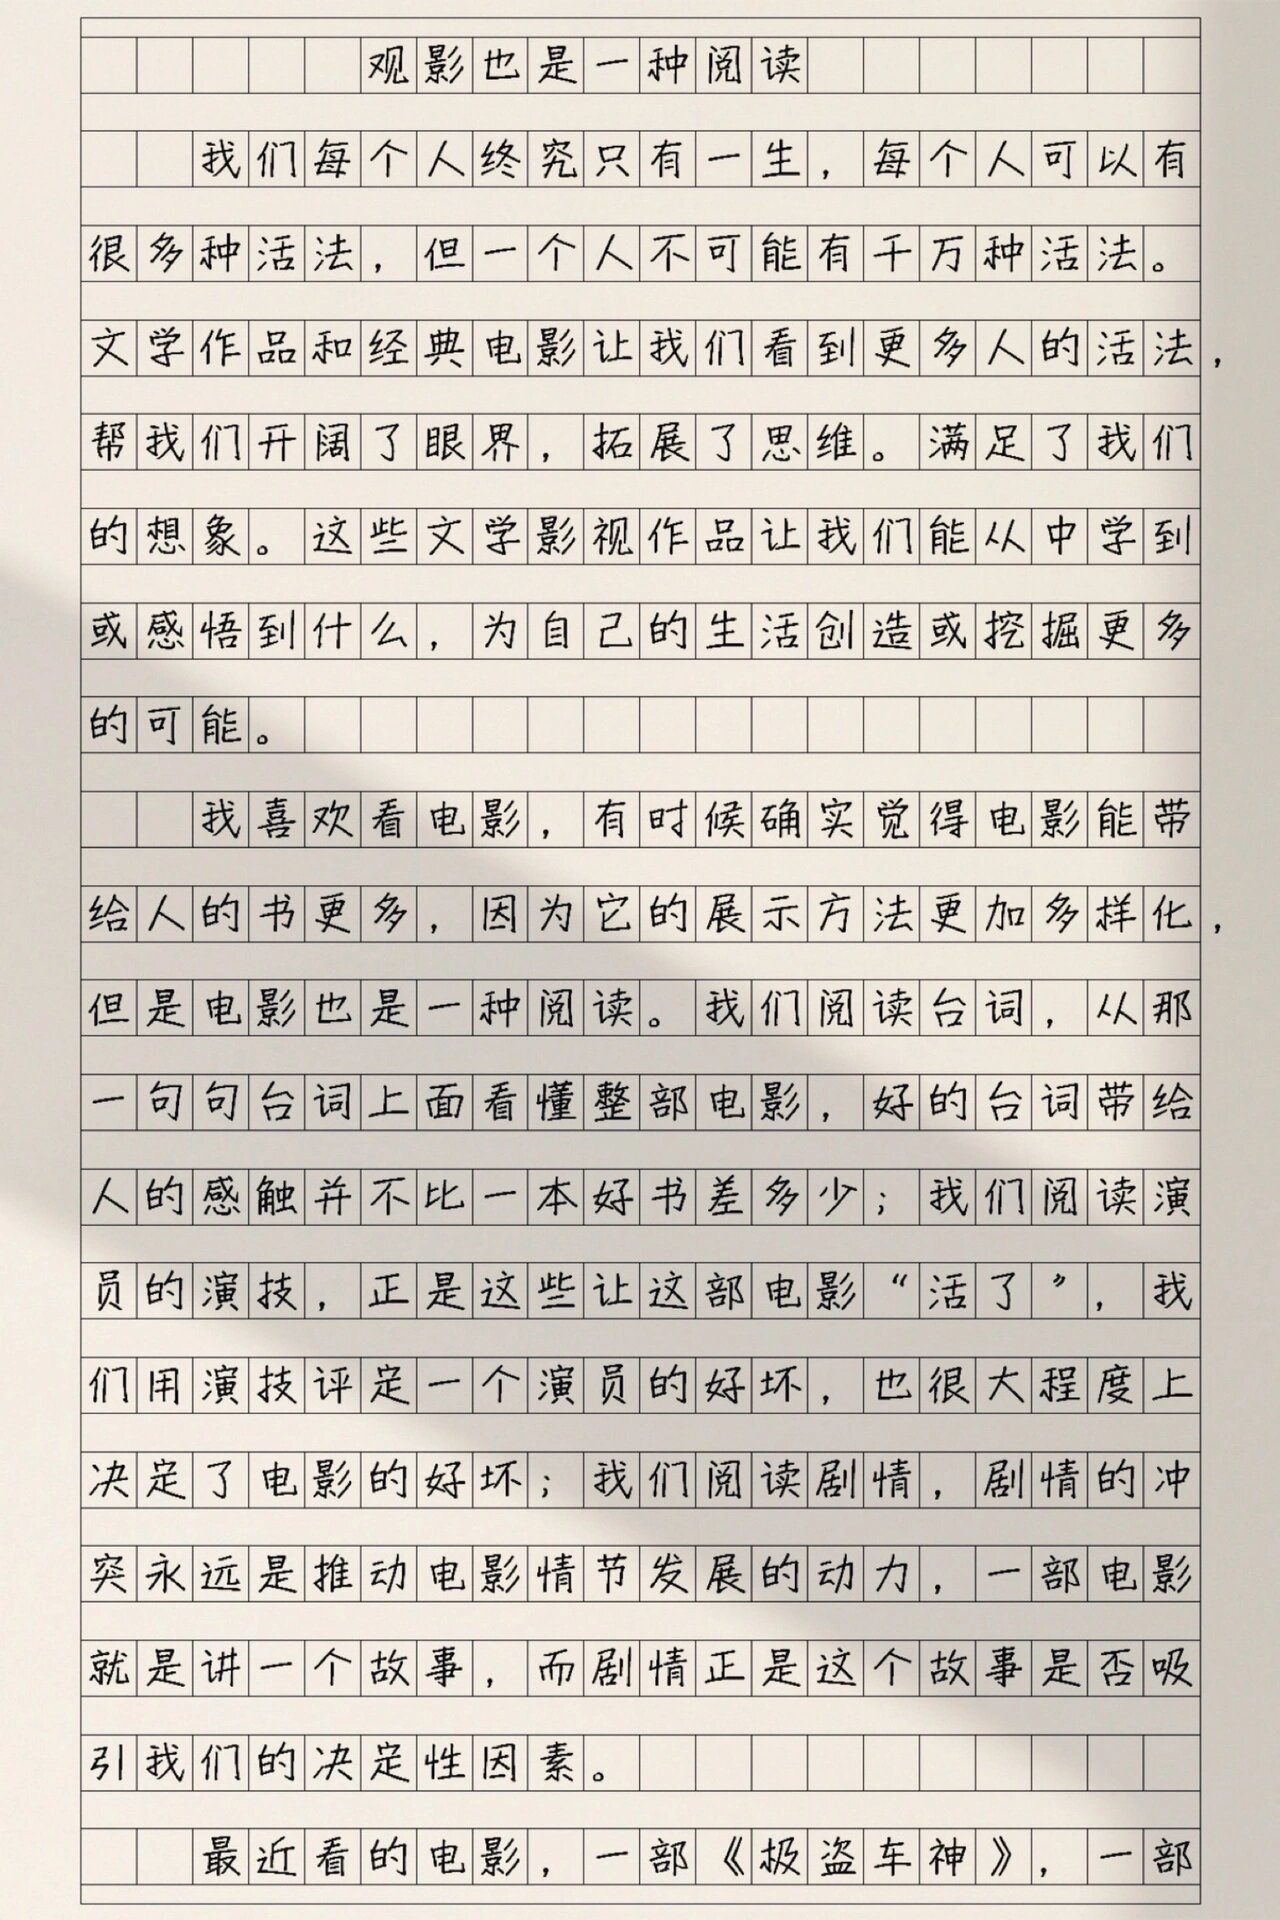 观影也是一种阅读
我们每个人终究只有一生，每个人可以有
很多种活法，但一个人不可能有千万种活法。
文学作品和经典电影让我们看到更多人的活法，
帮我们开阔了眼界，拓展了思维。满足了我们
的想象。这些文学影视作品让我们能从中学到
或感悟到什么，为自己的生活创造或挖掘更多
的可能。
我喜欢看电影，有时候确实觉得电影能带
给人的书更多，因为它的展示方法更加多样化，
但是电影也是一种阅读。我们阅读台词，从那
一句句台词上面看懂整部电影，好的台词带给
人的感触并不比一本好书差多少；我们阅读演
员的演技，正是这些让这部电影“活了”，我
们用演技评定一个演员的好坏，也很大程度上
决定了电影的好坏；我们阅读剧情，剧情的冲
突永远是推动电影情节发展的动力，一部电影
就是讲一个故事，而剧情正是这个故事是否吸
引我们的决定性因素。
最近看的电影，一部《极盗车神》，一部